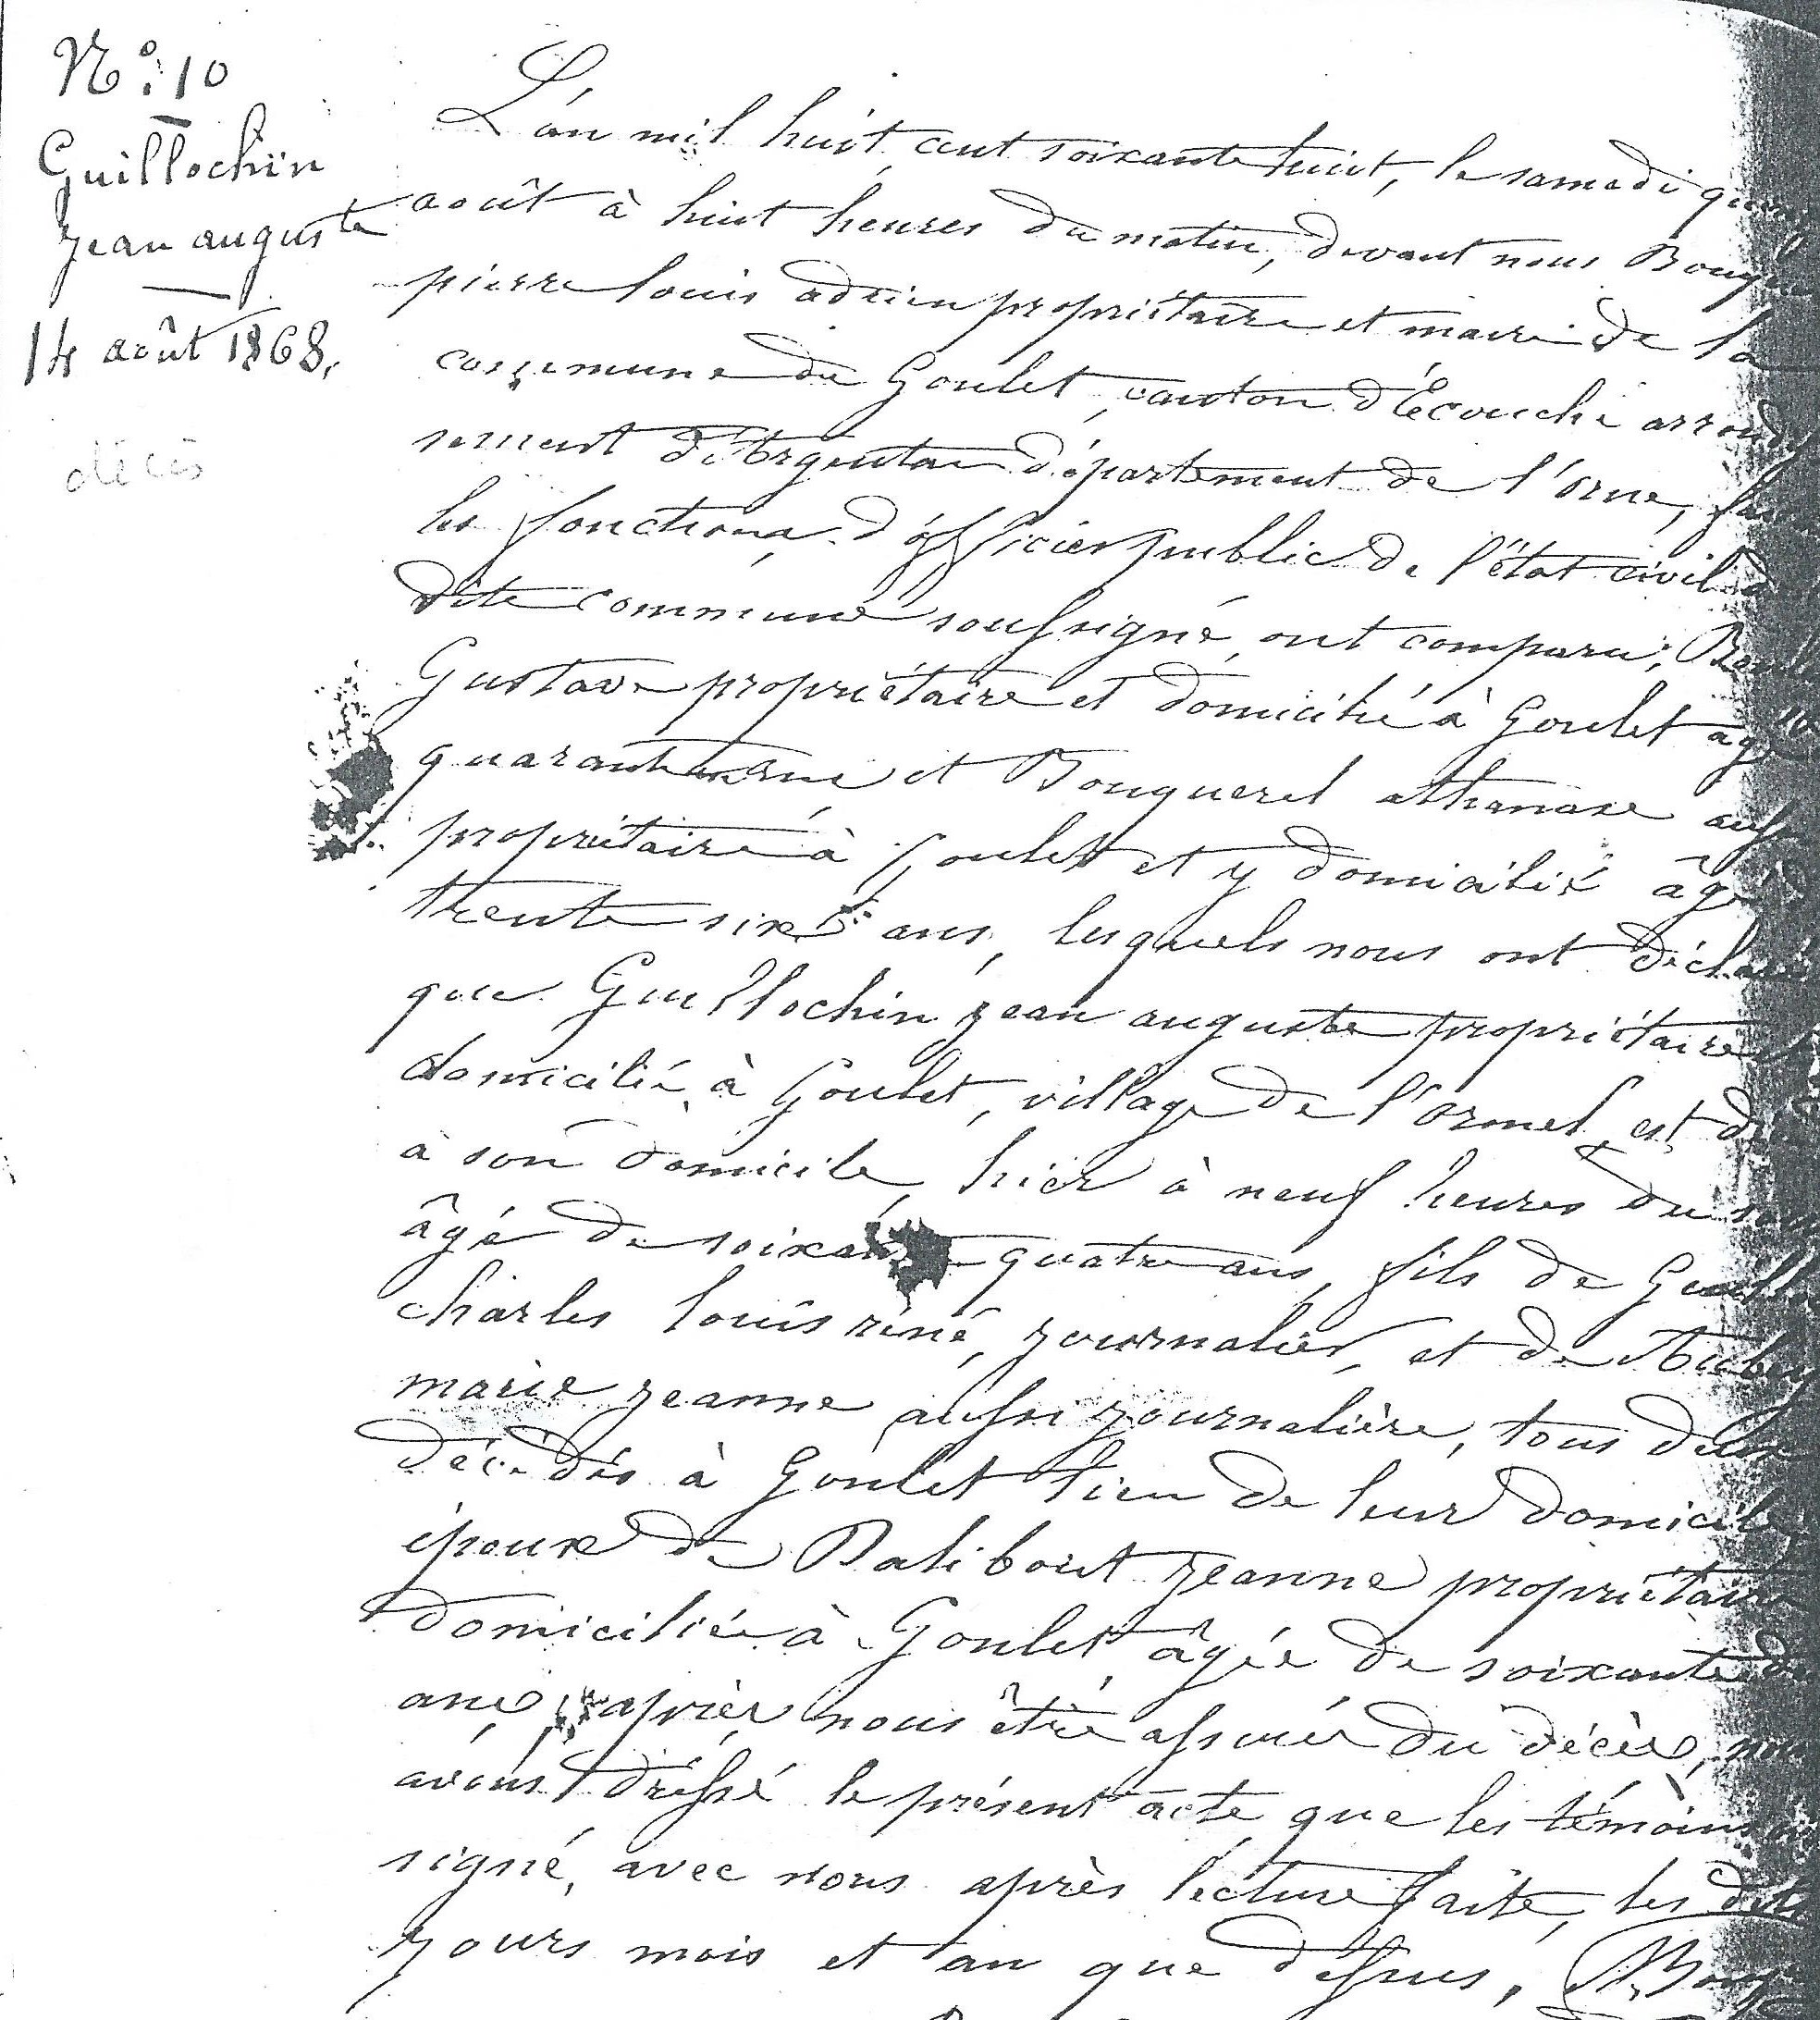 N°: 10
Guillochin
jean auguste
14 août 1868.
décès
L'an mil huit cent soixante huit, le samedi
août à huit heures du matin, devant nous
pierre louis adrien propriétaire et maire de la
commune de Goulet, canton d'Écouché
sement d'Argentan département de l'orne,
les fonctions d'officier public de l'état civil
dite commune soussigné, ont comparu;
Gustave propriétaire et domicilié à Goulet
et Bouquerel athanase
propriétaire à Goulet et y domicilié
trente six ans, lesquels nous ont
que Guillochin jean auguste propriétaire
domicilié à Goulet, village de l'ormel, est
à son domicile, hier à neuf heures du
âgé de quatre ans, fils de
charles louis réné, journalier, et de
marie jeanne aussi journalière, tous
décédés à Goulet lieu de leur
époux de Balibout jeanne
domiciliée à Goulet âgée de soixante
ans, après nous être assuré du décès,
avons dressé le présent acte que les témoins
signé, avec nous après lecture faite, les
jours mois et an que dessus,